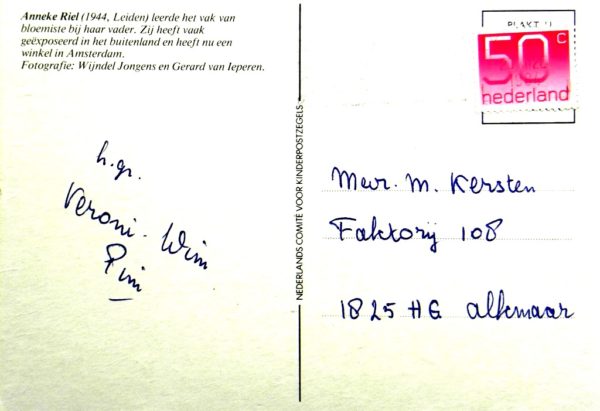 Anneke Riel (1944, Leiden) leerde het vak van
bloemiste bij haar vader. Zij heeft vaak
geëxposeerd in het buitenland en heeft nu een
winkel in Amsterdam.
Fotografie: Wijndel Jongens en Gerard van Ieperen.
h.gr.
Veroni. Wim
Pim
NEDERLANDS COMITÉ VOOR KINDERPOSTZEGELS
50 c
nederland
Mevr. M. Kersten
Faktorij 108
1825 HG Alkmaar